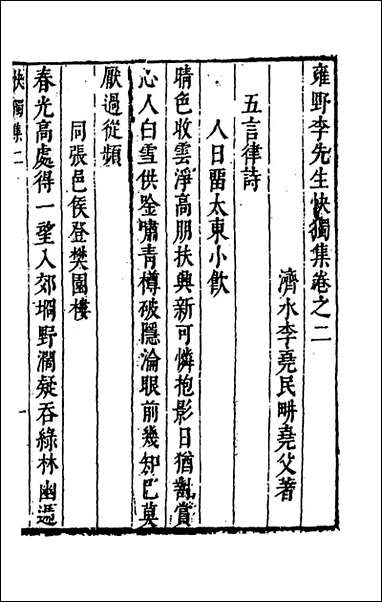 雍野李先生快獨集卷之二
濟水李堯民畊堯父著
五言律詩
人日畱太東小飲
晴色收雲淨高朋扶興新可憐抱影日猶對賞
心人白雪供鲨嘯青樽破隱淪眼前幾知巳莫
厭過從頻
同張邑侯登樊園樓
春光高處得一望入郊坰野濶疑吞綠林幽遞
快獨集二
一